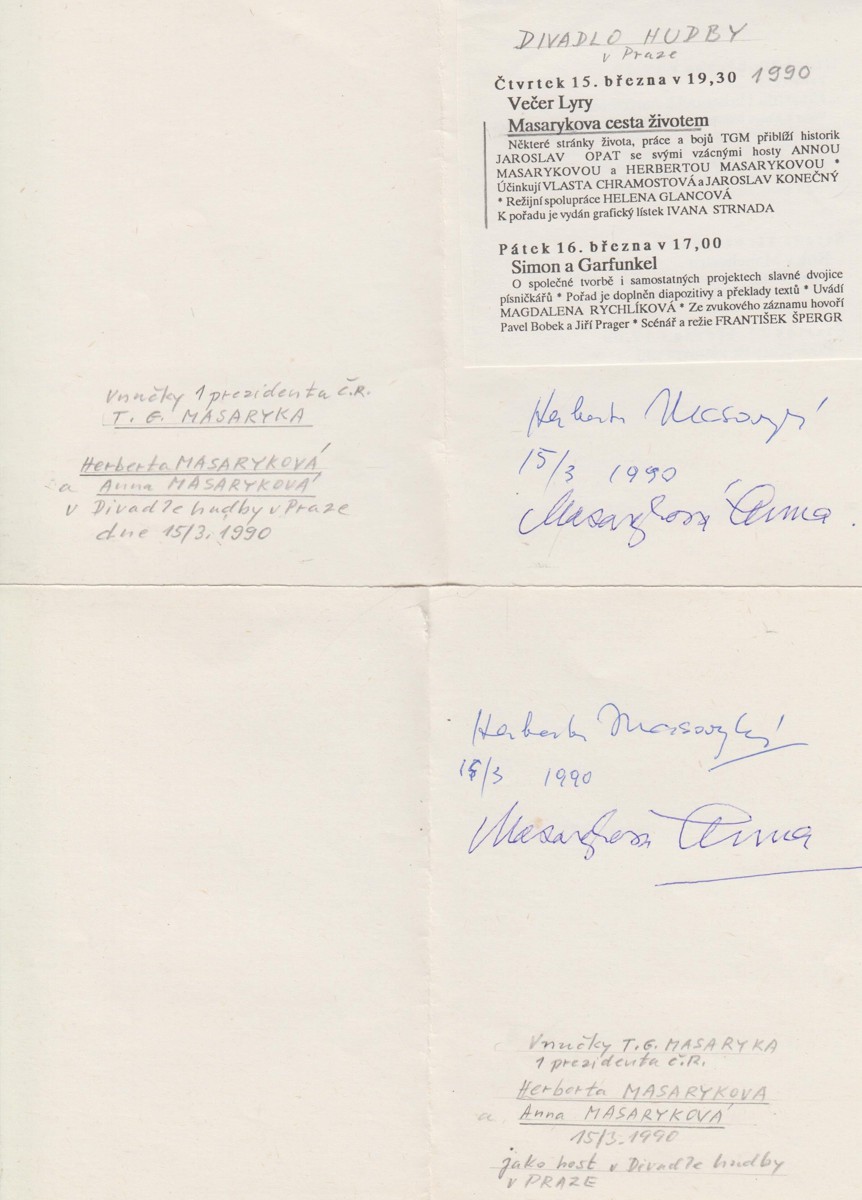 DIVADLO HUDBY
v Praze
Čtvrtek 15. března v 19,30 1990
Večer Lyry
Masarykova cesta životem
Některé stránky života, práce a bojů TGM přiblíží historik
JAROSLAV OPAT se svými vzácnými hosty ANNOU
MASARYKOVOU a HERBERTOU MASARYKOVOU *
Účinkují VLASTA CHRAMOSTOVÁ a JAROSLAV KONEČNÝ
* Režijní spolupráce HELENA GLANCOVÁ
K pořadu je vydán grafický lístek IVANA STRNADA
Pátek 16. března v 17,00
Simon a Garfunkel
O společné tvorbě i samostatných projektech slavné dvojice
písničkářů * Pořad je doplněn diapozitivy a překlady textů * Uvádí
MAGDALENA RYCHLÍKOVÁ * Ze zvukového záznamu hovoří
Pavel Bobek a Jiří Prager * Scénář a režie FRANTIŠEK ŠPERGR
Vnučky 1 prezidenta č.R.
T. G. MASARYKA
Herberta MASARYKOVÁ
a Anna MASARYKOVÁ
v Divadle hudby v Praze
dne 15/3. 1990
Herberta Masaryková
15/3 1990
Masaryková Anna
Herberta Masaryková
15/3 1990
Masaryková Anna
Vnučky T. G. MASARYKA
1 prezidenta č.R.
Herberta MASARYKOVA
a Anna MASARYKOVÁ
15/3. 1990
jako host v Divadle hudby
v PRAZE